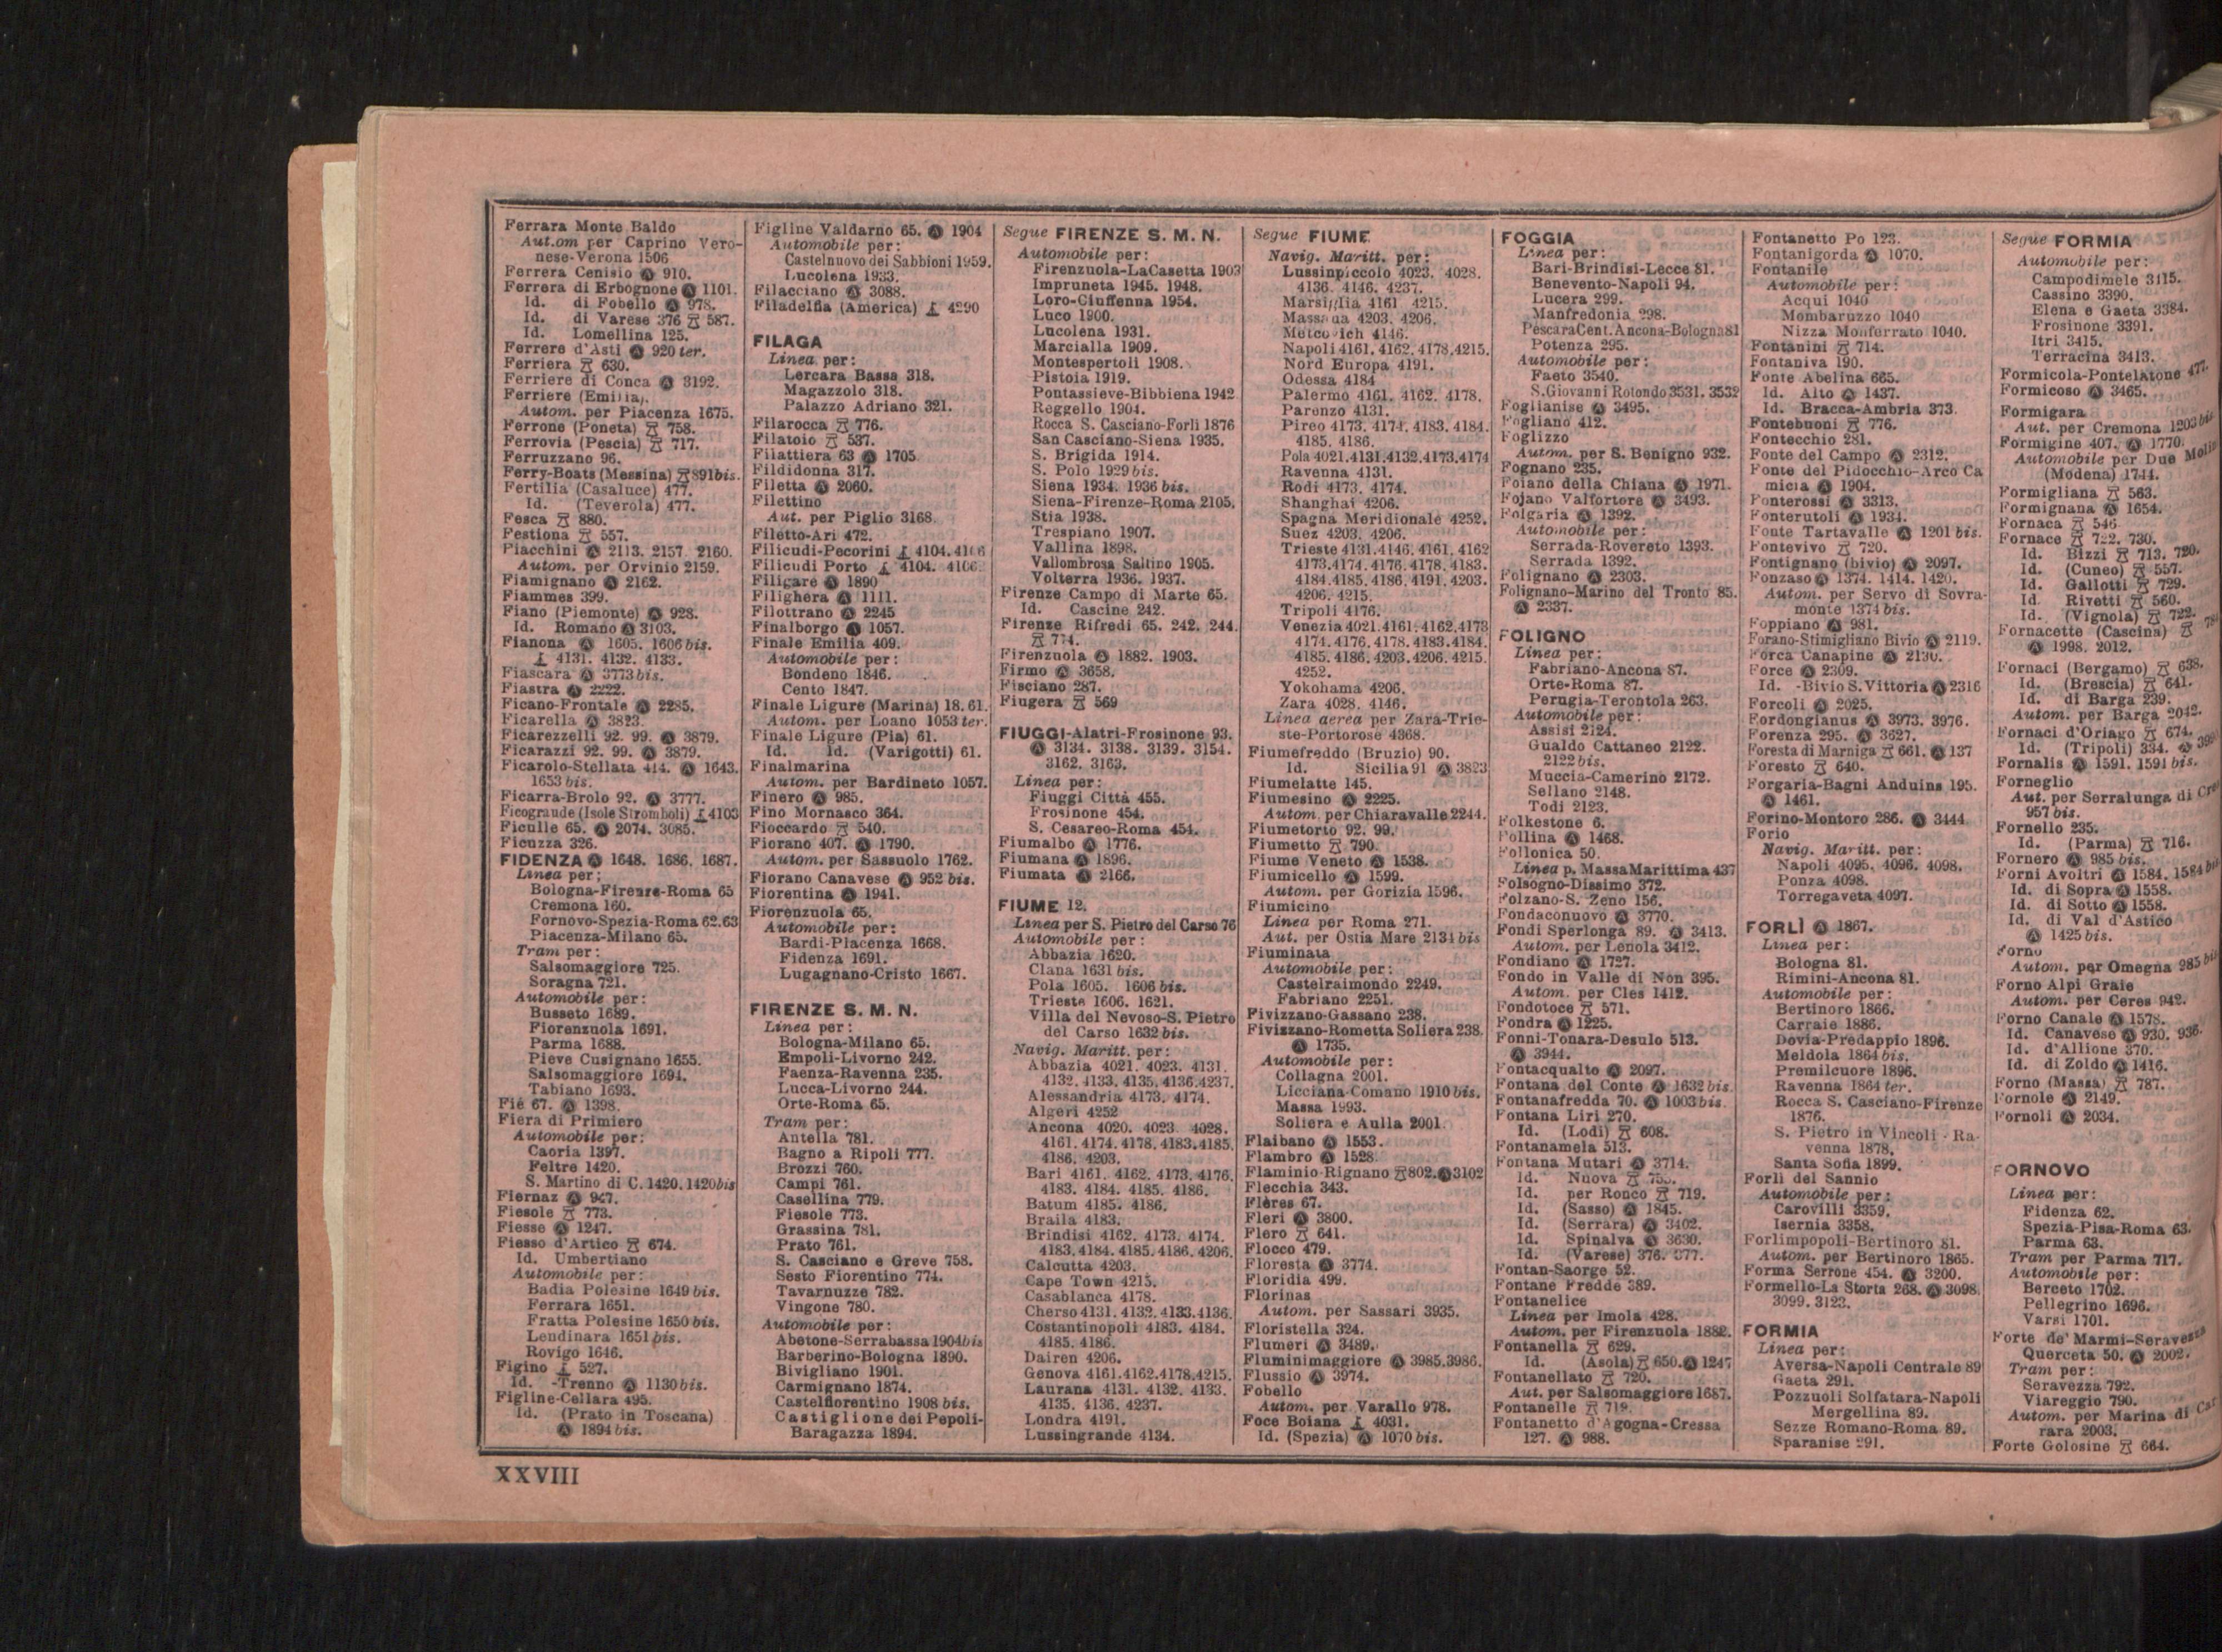 Ferrara Monte Baldo
Aut.om per Caprino Vero-
nese-Verona 1506
Ferrera Cenisio Ⓐ 910.
Ferrera di Erbognone Ⓐ 1101.
Id. di Fobello Ⓐ 978.
Id. di Varese 376 587.
Id. Lomellina 125.
Ferrere d'Asti Ⓐ 920 ter.
Ferriera 630.
Ferriere di Conca Ⓐ 3192.
Ferriere (Emilia).
Autom. per Piacenza 1675.
Ferrone (Poneta) 758.
Ferrovia (Pescia) 717.
Ferruzzano 96.
Ferry-Boats (Messina) 891bis.
Fertilia (Casaluce) 477.
Id. (Teverola) 477.
Fesca 880.
Festiona 557.
Fiacchini Ⓐ 2113. 2157. 2160.
Autom. per Orvinio 2159.
Fiamignano Ⓐ 2162.
Fiammes 399.
Fiano (Piemonte) Ⓐ 928.
Id. Romano Ⓐ 3103.
Fianona Ⓐ 1605. 1606 bis.
4131. 4132. 4133.
Fiascara Ⓐ 3773 bis.
Fiastra Ⓐ 2222.
Ficano-Frontale Ⓐ 2285.
Ficarella Ⓐ 3823.
Ficarezzelli 92. 99. Ⓐ 3879.
Ficarazzi 92. 99. Ⓐ 3879.
Ficarolo-Stellata 414. Ⓐ 1643.
1653 bis.
Ficarra-Brolo 92. Ⓐ 3777.
Ficogrande (Isole Stromboli) 4103
Ficulle 65. Ⓐ 2074. 3085.
Ficuzza 326.
FIDENZA Ⓐ 1648. 1686. 1687.
Linea per:
Bologna-Firenze-Roma 65
Cremona 160.
Fornovo-Spezia-Roma 62.63
Piacenza-Milano 65.
Tram per:
Salsomaggiore 725.
Soragna 721.
Automobile per:
Busseto 1689.
Fiorenzuola 1691.
Parma 1688.
Pieve Cusignano 1655.
Salsomaggiore 1694.
Tabiano 1693.
Fiè 67. Ⓐ 1398.
Fiera di Primiero
Automobile per:
Caoria 1397.
Feltre 1420.
S. Martino di C. 1420. 1420bis
Fiernaz Ⓐ 947.
Fiesole 773.
Fiesse Ⓐ 1247.
Fiesso d'Artico 674.
Id. Umbertiano
Automobile per:
Badia Polesine 1649 bis.
Ferrara 1651.
Fratta Polesine 1650 bis.
Lendinara 1651 bis.
Rovigo 1646.
Figino 527.
Id. -Trenno Ⓐ 1130 bis.
Figline-Cellara 495.
Id. (Prato in Toscana)
Ⓐ 1894 bis.
Figline Valdarno 65. Ⓐ 1904
Automobile per:
Castelnuovo dei Sabbioni 1959.
Lucolena 1933.
Filacciano Ⓐ 3088.
Filadelfia (America) 4290
FILAGA
Linea per:
Lercara Bassa 318.
Magazzolo 318.
Palazzo Adriano 321.
Filarocca 776.
Filatoio 537.
Filattiera 63 Ⓐ 1705
Fildidonna 317.
Filetta Ⓐ 2060.
Filettino
Aut. per Piglio 3168.
Filetto-Ari 472.
Filicudi-Pecorini 4104. 4106
Filicudi Porto 4104. 4106.
Filigare Ⓐ 1890
Filighera Ⓐ 1111.
Filottrano Ⓐ 2245
Finalborgo Ⓐ 1057.
Finale Emilia 409.
Automobile per:
Bondeno 1846.
Cento 1847.
Finale Ligure (Marina) 18. 61.
Autom. per Loano 1053 ter.
Finale Ligure (Pia) 61.
Id. Id. (Varigotti) 61.
Finalmarina
Autom. per Bardineto 1057.
Finero Ⓐ 985.
Fino Mornasco 364.
Fioccardo 540.
Fiorano 407. Ⓐ 1790.
Autom. per Sassuolo 1762.
Fiorano Canavese Ⓐ 952 bis.
Fiorentina Ⓐ 1941.
Fiorenzuola 65.
Automobile per:
Bardi-Piacenza 1668.
Fidenza 1691.
Lugagnano-Cristo 1667.
FIRENZE S. M. N.
Linea per:
Bologna-Milano 65.
Empoli-Livorno 242.
Faenza-Ravenna 235.
Lucca-Livorno 244.
Orte-Roma 65.
Tram per:
Antella 781.
Bagno a Ripoli 777.
Brozzi 760.
Campi 761.
Casellina 779.
Fiesole 773.
Grassina 781.
Prato 761.
S. Casciano e Greve 758.
Sesto Fiorentino 774.
Tavarnuzze 782.
Vingone 780.
Automobile per:
Abetone-Serrabassa 1904bis
Barberino-Bologna 1890.
Bivigliano 1901.
Carmignano 1874.
Castelfiorentino 1908 bis.
Castiglione dei Pepoli-
Baragazza 1894.
Segue FIRENZE S. M. N.
Automobile per:
Firenzuola-LaCasetta 1903
Impruneta 1945. 1948.
Loro-Ciuffenna 1954.
Luco 1900.
Lucolena 1931.
Marcialla 1909.
Montespertoli 1908.
Pistoia 1919.
Pontassieve-Bibbiena 1942
Reggello 1904.
Rocca S. Casciano-Forlì 1876
San Casciano-Siena 1935.
S. Brigida 1914.
S. Polo 1929 bis.
Siena 1934. 1936 bis.
Siena-Firenze-Roma 2105.
Stia 1938.
Trespiano 1907.
Vallina 1898.
Vallombrosa Saltino 1905.
Volterra 1936. 1937.
Firenze Campo di Marte 65.
Id. Cascine 242.
Firenze Rifredi 65. 242. 244.
774.
Firenzuola Ⓐ 1882. 1903.
Firmo Ⓐ 3658.
Fisciano 287.
Fiugera 569
FIUGGI-Alatri-Frosinone 93.
Ⓐ 3134. 3138. 3139. 3154.
3162. 3163.
Linea per:
Fiuggi Città 455.
Frosinone 454.
S. Cesareo-Roma 454.
Fiumalbo Ⓐ 1776.
Fiumana Ⓐ 1896.
Fiumata Ⓐ 2166.
FIUME 12.
Linea per S. Pietro del Carso 76
Automobile per:
Abbazia 1620.
Clana 1631 bis.
Pola 1605. 1606 bis.
Trieste 1606. 1621.
Villa del Nevoso-S. Pietro
del Carso 1632 bis.
Navig. Maritt. per:
Abbazia 4021. 4023. 4131.
4132. 4133. 4135. 4136.4237.
Alessandria 4173. 4174.
Algeri 4252
Ancona 4020. 4023. 4028.
4161. 4174. 4178. 4183.4185.
4186. 4203.
Bari 4161. 4162. 4173. 4176.
4183. 4184. 4185. 4186.
Batum 4185. 4186.
Braila 4183.
Brindisi 4162. 4173. 4174.
4183. 4184. 4185. 4186. 4206.
Calcutta 4203.
Cape Town 4215.
Casablanca 4178.
Cherso 4131. 4132. 4133.4136.
Costantinopoli 4183. 4184.
4185. 4186.
Dairen 4206.
Genova 4161.4162.4178.4215.
Laurana 4131. 4132. 4133.
4135. 4136. 4237.
Londra 4191.
Lussingrande 4134.
Segue FIUME
Navig. Maritt. per:
Lussinpiccolo 4023. 4028.
4136. 4146. 4237.
Marsiglia 4161 4215.
Massaua 4203. 4206.
Metcovich 4146.
Napoli 4161. 4162. 4178.4215.
Nord Europa 4191.
Odessa 4184
Palermo 4161. 4162. 4178.
Parenzo 4131.
Pireo 4173. 4174. 4183. 4184.
4185. 4186.
Pola 4021.4131.4132.4173.4174
Ravenna 4131.
Rodi 4173. 4174.
Shanghai 4206.
Spagna Meridionale 4252.
Suez 4203. 4206.
Trieste 4131.4146. 4161. 4162
4173.4174. 4176. 4178. 4183.
4184.4185. 4186. 4191. 4203.
4206. 4215.
Tripoli 4176.
Venezia 4021.4161.4162.4173
4174. 4176. 4178. 4183.4184.
4185. 4186. 4203. 4206. 4215.
4252.
Yokohama 4206.
Zara 4028. 4146.
Linea aerea per Zara-Trie-
ste-Portorose 4368.
Fiumefreddo (Bruzio) 90.
Id. Sicilia 91 Ⓐ 3823
Fiumelatte 145.
Fiumesino Ⓐ 2225.
Autom. per Chiaravalle 2244.
Fiumetorto 92. 99.
Fiumetto 790.
Fiume Veneto Ⓐ 1538.
Fiumicello Ⓐ 1599.
Autom. per Gorizia 1596.
Fiumicino
Linea per Roma 271.
Aut. per Ostia Mare 2134 bis
Fiuminata
Automobile per:
Castelraimondo 2249.
Fabriano 2251.
Fivizzano-Gassano 238.
Fivizzano-Rometta Soliera 238.
Ⓐ 1735.
Automobile per:
Collagna 2001.
Licciana-Comano 1910 bis.
Massa 1993.
Soliera e Aulla 2001.
Flaibano Ⓐ 1553.
Flambro Ⓐ 1528.
Flaminio-Rignano 802. Ⓐ 3102
Flecchia 343.
Flères 67.
Fleri Ⓐ 3800.
Flero 641.
Flocco 479.
Floresta Ⓐ 3774.
Floridia 499.
Florinas
Autom. per Sassari 3935.
Floristella 324.
Flumeri Ⓐ 3489.
Fluminimaggiore Ⓐ 3985.3986.
Flussio Ⓐ 3974.
Fobello
Autom. per Varallo 978.
Foce Boiana 4031.
Id. (Spezia) Ⓐ 1070 bis.
FOGGIA
Linea per:
Bari-Brindisi-Lecce 81.
Benevento-Napoli 94.
Lucera 299.
Manfredonia 298.
PescaraCent.Ancona-Bologna81
Potenza 295.
Automobile per:
Faeto 3540.
S.Giovanni Rotondo 3531. 3532
Foglianise Ⓐ 3495.
Fogliano 412.
Foglizzo
Autom. per S. Benigno 932.
Fognano 235.
Foiano della Chiana Ⓐ 1971.
Fojano Valfortore Ⓐ 3493.
Folgaria Ⓐ 1392.
Automobile per:
Serrada-Rovereto 1393.
Serrada 1392.
Folignano Ⓐ 2303.
Folignano-Marino del Tronto 85.
Ⓐ 2337.
FOLIGNO
Linea per:
Fabriano-Ancona 87.
Orte-Roma 87.
Perugia-Terontola 263.
Automobile per:
Assisi 2124.
Gualdo Cattaneo 2122.
2122 bis.
Muccia-Camerino 2172.
Sellano 2148.
Todi 2123.
Folkestone 6.
Follina Ⓐ 1468.
Follonica 50.
Linea p. MassaMarittima 437
Folsogno-Dissimo 372.
Folzano-S. Zeno 156.
Fondaconuovo Ⓐ 3770.
Fondi Sperlonga 89. Ⓐ 3413.
Autom. per Lenola 3412.
Fondiano Ⓐ 1727.
Fondo in Valle di Non 395.
Autom. per Cles 1412.
Fondotoce 571.
Fondra Ⓐ 1225.
Fonni-Tonara-Desulo 513.
Ⓐ 3944.
Fontacqualto Ⓐ 2097.
Fontana del Conte Ⓐ 1632 bis.
Fontanafredda 70. Ⓐ 1003 bis.
Fontana Liri 270.
Id. (Lodi) 608.
Fontanamela 513.
Fontana Mutari Ⓐ 3714.
Id. Nuova
Id. per Ronco 719.
Id. (Sasso) Ⓐ 1845.
Id. (Serrara) Ⓐ 3402.
Id. Spinalva Ⓐ 3630.
Id. (Varese) 376. 377.
Fontan-Saorge 52.
Fontane Fredde 389.
Fontanelice
Linea per Imola 428.
Autom. per Firenzuola 1882.
Fontanella 629.
Id. (Asola) 650. Ⓐ 1247
Fontanellato 720.
Aut. per Salsomaggiore 1687.
Fontanelle 719.
Fontanetto d'Agogna-Cressa
127. Ⓐ 988.
Fontanetto Po 123.
Fontanigorda Ⓐ 1070.
Fontanile
Automobile per:
Acqui 1040
Mombaruzzo 1040
Nizza Monferrato 1040.
Fontanini 714.
Fontaniva 190.
Fonte Abelina 665.
Id. Alto Ⓐ 1437.
Id. Bracca-Ambria 373.
Fontebuoni 776.
Fontecchio 281.
Fonte del Campo Ⓐ 2312.
Fonte del Pidocchio-Arco Ca
micia Ⓐ 1904.
Fonterossi Ⓐ 3313.
Fonterutoli Ⓐ 1934.
Fonte Tartavalle Ⓐ 1201 bis.
Fontevivo 720.
Fontignano (bivio) Ⓐ 2097.
Fonzaso Ⓐ 1374. 1414. 1420.
Autom. per Servo di Sovra-
monte 1374 bis.
Foppiano Ⓐ 981.
Forano-Stimigliano Bivio Ⓐ 2119.
Forca Canapine Ⓐ 2130.
Force Ⓐ 2309.
Id. -Bivio S. Vittoria Ⓐ 2316
Forcoli Ⓐ 2025.
Fordongianus Ⓐ 3973. 3976.
Forenza 295. Ⓐ 3627.
Foresta di Marniga 661. Ⓐ 137
Foresto 640.
Forgaria-Bagni Anduins 195.
Ⓐ 1461.
Forino-Montoro 286. Ⓐ 3444
Forio
Navig. Maritt. per:
Napoli 4095. 4096. 4098.
Ponza 4098.
Torregaveta 4097.
FORLÌ Ⓐ 1867.
Linea per:
Bologna 81.
Rimini-Ancona 81.
Automobile per:
Bertinoro 1866.
Carraie 1886.
Dovia-Predappio 1896.
Meldola 1864 bis.
Premilcuore 1896.
Ravenna 1864 ter.
Rocca S. Casciano-Firenze
1876.
S. Pietro in Vincoli - Ra-
venna 1878.
Santa Sofia 1899.
Forlì del Sannio
Automobile per:
Carovilli 3359.
Isernia 3358.
Forlimpopoli-Bertinoro 81.
Autom. per Bertinoro 1865.
Forma Serrone 454. Ⓐ 3200.
Formello-La Storta 268. Ⓐ 3098.
3099. 3123.
FORMIA
Linea per:
Aversa-Napoli Centrale 89
Gaeta 291.
Pozzuoli Solfatara-Napoli
Mergellina 89.
Sezze Romano-Roma 89.
Sparanise 291.
Segue FORMIA
Automobile per:
Campodimele 3115.
Cassino 3390.
Elena e Gaeta 3384.
Frosinone 3391.
Itri 3415.
Terracina 3413.
Formicola-Pontelatone 477.
Formicoso Ⓐ 3465.
Formigara
Aut. per Cremona 1203 bis
Formigine 407. Ⓐ 1770.
Automobile per Due
(Modena) 1744.
Formigliana 563.
Formignana Ⓐ 1654.
Fornaca 546
Fornace 722. 730.
Id. Bizzi 713. 720.
Id. (Cuneo) 557.
Id. Gallotti 729.
Id. Rivetti 560.
Id. (Vignola) 722.
Fornacette (Cascina)
Ⓐ 1998. 2012.
Fornaci (Bergamo) 638.
Id. (Brescia) 641.
Id. di Barga 239.
Autom. per Barga 2042.
Fornaci d'Oriago 674.
Id. (Tripoli) 334.
Fornalis Ⓐ 1591. 1591 bis.
Forneglio
Aut. per Serralunga di
957 bis.
Fornello 235.
Id. (Parma) 716.
Fornero Ⓐ 985 bis.
Forni Avoltri Ⓐ 1584. 1584 bis
Id. di Sopra Ⓐ 1558.
Id. di Sotto Ⓐ 1558.
Id. di Val d'Astico
Ⓐ 1425 bis.
Forno
Autom. per Omegna 985 bis
Forno Alpi Graie
Autom. per Ceres 942.
Forno Canale Ⓐ 1578.
Id. Canavese Ⓐ 930. 936.
Id. d'Allione 370.
Id. di Zoldo Ⓐ 1416.
Forno (Massa) 787.
Fornole Ⓐ 2149.
Fornoli Ⓐ 2034.
FORNOVO
Linea per:
Fidenza 62.
Spezia-Pisa-Roma 63.
Parma 63.
Tram per Parma 717.
Automobile per:
Berceto 1702.
Pellegrino 1696.
Varsi 1701.
Forte de' Marmi-Seravezza
Querceta 50. Ⓐ 2002.
Tram per:
Seravezza 792.
Viareggio 790.
Autom. per Marina di Car
rara 2003.
Forte Golosine 664.
XXVIII